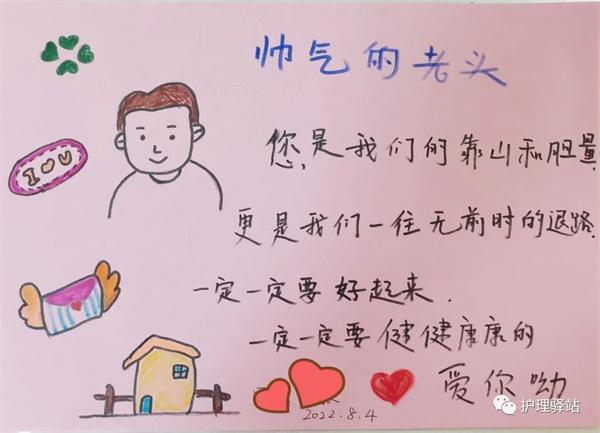 帅气的老头
I O U
您是我们的靠山和胆量,
更是我们一往无前时的退路.
一定一定要好起来.
一定一定要健健康康的
爱你呦
2022.8.4
护理驿站